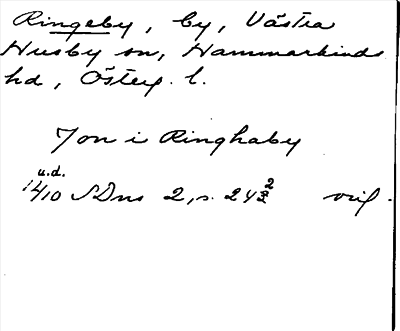 Ringeby, by, Västra
Husby sn, Hammarkinds
hd, Österg. l.
Jon i Ringhaby
u.d.
14/10 SDns 2, s. 242
orig.